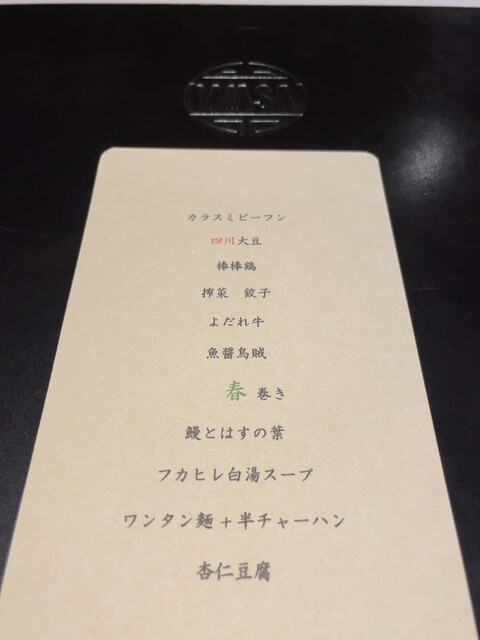 WASA
カラスミビーフン
四川大豆
棒棒鶏
搾菜　餃子
よだれ牛
魚醤烏賊
春 巻き
鰻とはすの葉
フカヒレ白湯スープ
ワンタン麺+半チャーハン
杏仁豆腐